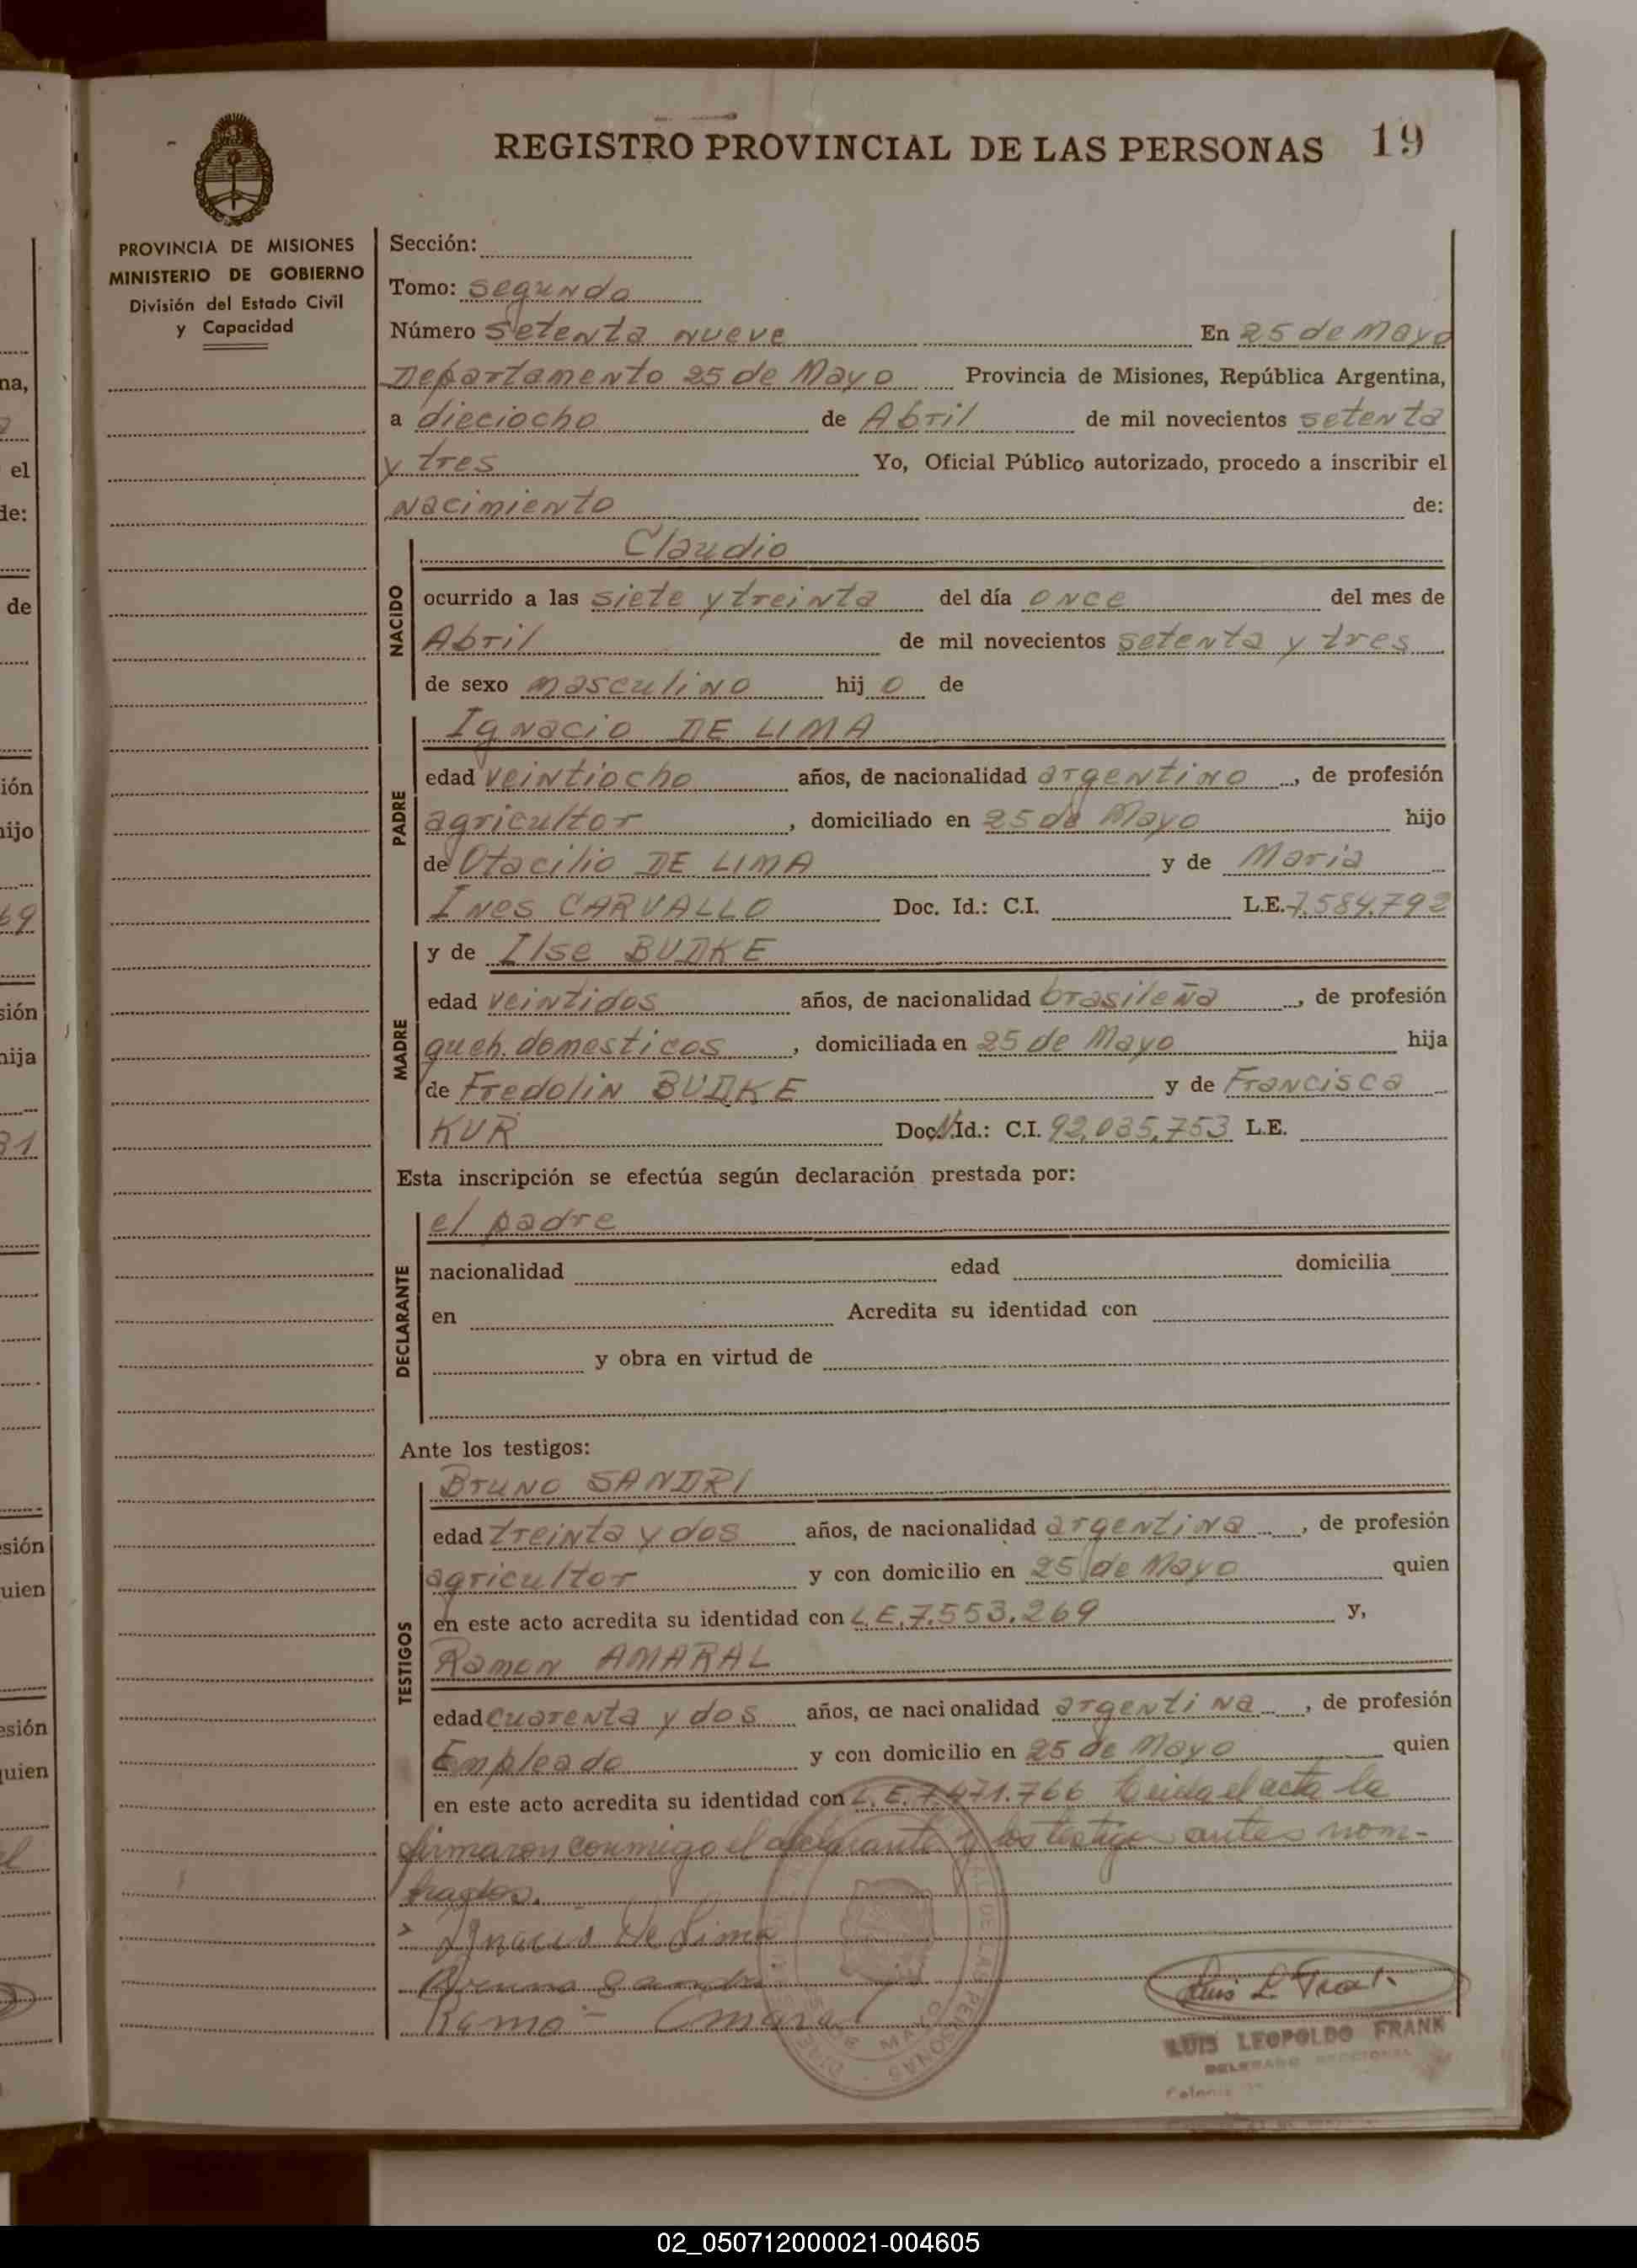 REGISTRO PROVINCIAL DE LAS PERSONAS 19
PROVINCIA DE MISIONES
MINISTERIO DE GOBIERNO
División del Estado Civil
y Capacidad
Sección:
Tomo: segundo
Número setenta nueve En 25 de Mayo
Departamento 25 de Mayo Provincia de Misiones, República Argentina,
a dieciocho de Abril de mil novecientos setenta
y tres Yo, Oficial Público autorizado, procedo a inscribir el
nacimiento de:
NACIDO
Claudio
ocurrido a las siete y treinta del día once del mes de
Abril de mil novecientos setenta y tres
de sexo masculino hijo de
PADRE
Ignacio DE LIMA
edad veintiocho años, de nacionalidad argentino, de profesión
agricultor, domiciliado en 25 de Mayo hijo
de Otacilio DE LIMA y de Maria
Ines CARVALLO Doc. Id.: C.I. L.E. 7.584.792
MADRE
y de Ilse BUDKE
edad veintidos años, de nacionalidad brasileña, de profesión
queh. domesticos, domiciliada en 25 de Mayo hija
de Fredolin BUDKE y de Francisca
KUR Doc. Id.: C.I. 92.035.753 L.E.
Esta inscripción se efectúa según declaración prestada por:
DECLARANTE
el padre
nacionalidad edad domicilia
en Acredita su identidad con
y obra en virtud de
Ante los testigos:
TESTIGOS
Bruno SANDRI
edad treinta y dos años, de nacionalidad argentina, de profesión
agricultor y con domicilio en 25 de Mayo quien
en este acto acredita su identidad con L.E. 7.553.269 y,
Ramon AMARAL
edad cuarenta y dos años, de nacionalidad argentina, de profesión
Empleado y con domicilio en 25 de Mayo quien
en este acto acredita su identidad con L.E. 7.471.766 Leida el acta la
firmaron conmigo el declarante y los testigos antes nom-
brados.
Ignacio De Lima
Bruno Sandri
Ramo Amaral
LUIS LEOPOLDO FRANK
02_050712000021-004605